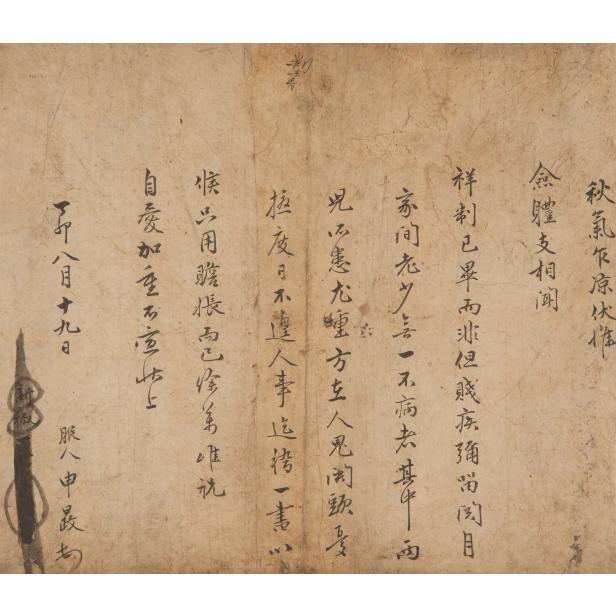 秋氣乍凉伏惟
僉體支相聞
祥制已畢而非但賤疾彌留閱月
家間老少無一不病者其中兩
兒所患尤重方在人鬼関頭憂
撓度日不遑人事迄稽一書以
候只用瞻悵而已餘萬唯祝
自愛加重不宣狀上
丁卯八月十九日
服人申